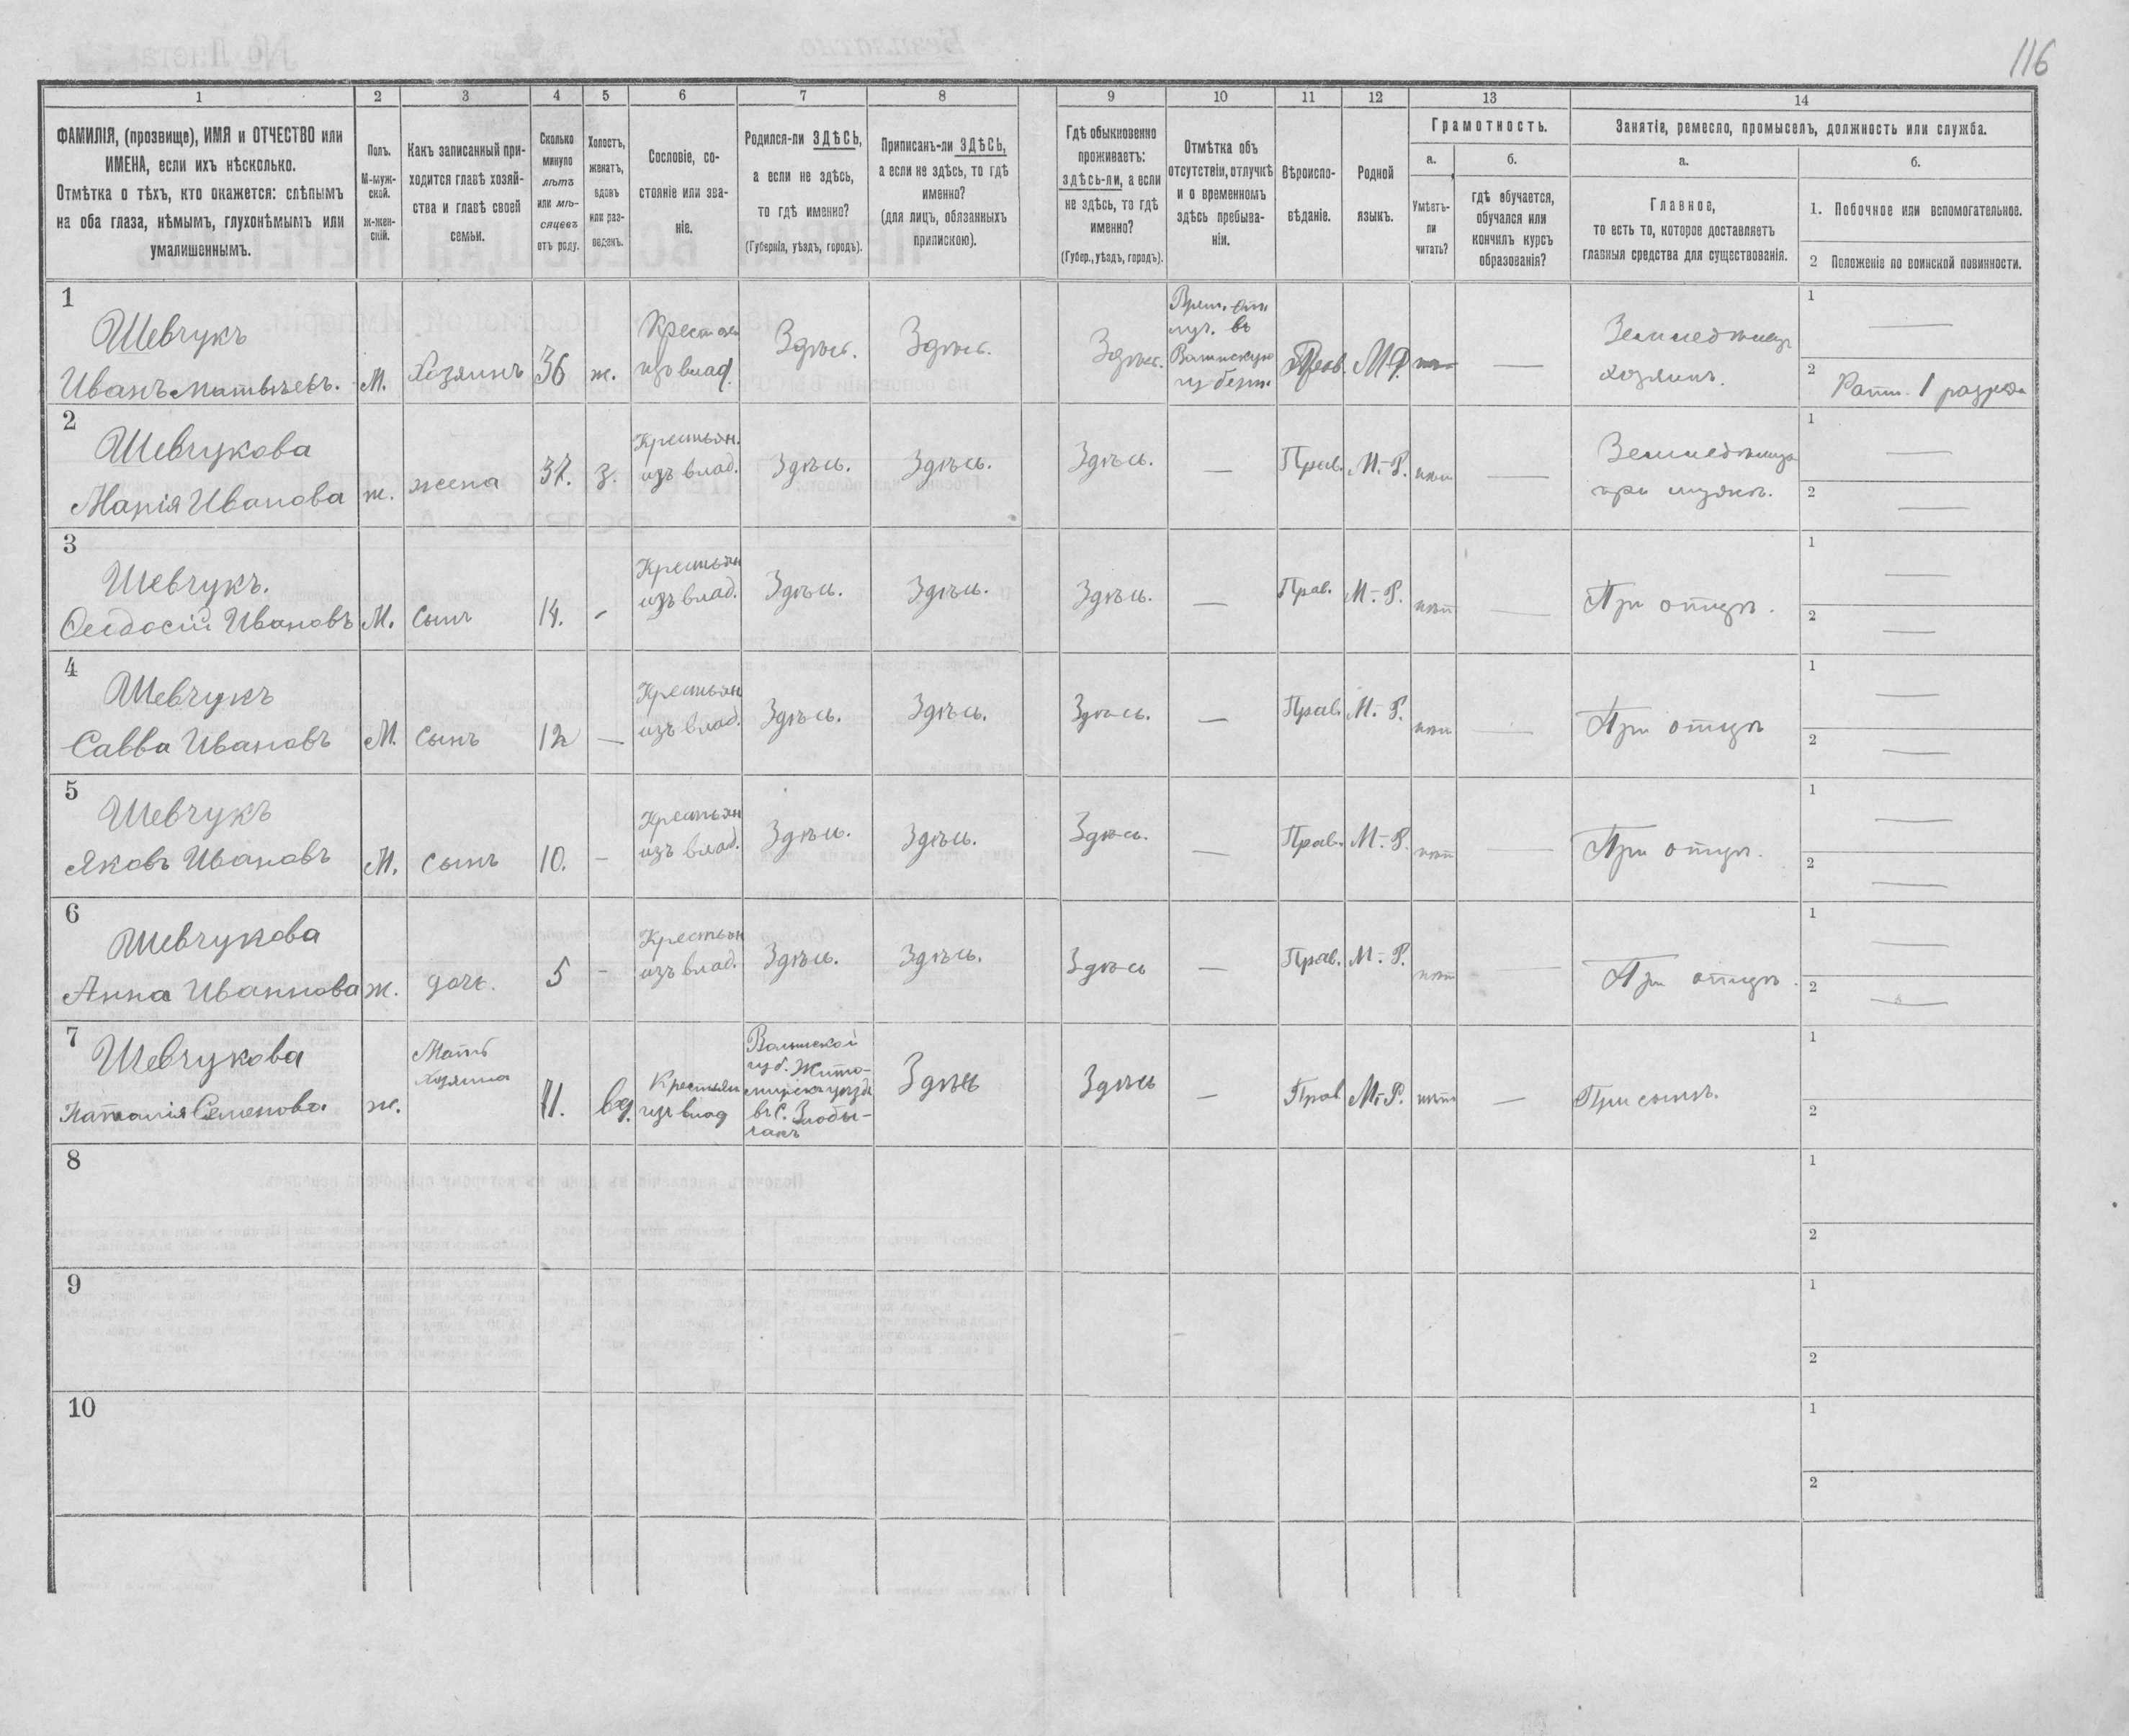 116
1
2
3
4
5
6
7
8
9
10
11
12
13
14
ФАМИЛІЯ, (прозвище), ИМЯ и ОТЧЕСТВО или
ИМЕНА, если ихъ нѣсколько.
Отмѣтка о тѣхъ, кто окажется: слѣпымъ
на оба глаза, нѣмымъ, глухонѣмымъ или
умалишеннымъ.
Полъ.
М-муж-
ской.
ж-жен-
скій.
Какъ записанный при-
ходится главѣ хозяй-
ства и главѣ своей
семьи.
Сколько
минуло
лѣтъ
или мѣ-
сяцевъ
отъ роду.
Холостъ,
женатъ,
вдовъ
или раз-
веденъ.
Сословіе, со-
стояніе или зва-
ніе.
Родился-ли ЗДѢСЬ,
а если не здѣсь,
то гдѣ именно?
(Губернія, уѣздъ, городъ).
Приписанъ-ли ЗДѢСЬ,
а если не здѣсь, то гдѣ
именно?
(для лицъ, обязанныхъ
припискою).
Гдѣ обыкновенно
проживаетъ:
здѣсь-ли, а если
не здѣсь, то гдѣ
именно?
(Губер., уѣздъ, городъ).
Отмѣтка объ
отсутствіи, отлучкѣ
и о временномъ
здѣсь пребыва-
ніи.
Вѣроиспо-
вѣданіе.
Родной
языкъ.
Грамотность.
а.
Умѣетъ-
ли
читать?
б.
гдѣ обучается,
обучался или
кончилъ курсъ
образованія?
Занятіе, ремесло, промыселъ, должность или служба.
а.
Главное,
то есть то, которое доставляетъ
главныя средства для существованія.
б.
1. Побочное или вспомогательное.
2 Положеніе по воинской повинности.
1
Шевчукъ
Иванъ Матвѣевъ.
М.
Хозяинъ
36
ж.
Крестьян
изъ влад.
Здѣсь.
Здѣсь.
Здѣсь.
Врем. от
луч. въ
Волынскую
губерн.
Прав.
М-Р.
—
Земледѣлецъ
хозяинъ.
1 —
2 Ратн. 1 разряда
2
Шевчукова
Марія Иванова
ж.
жена
37.
з.
Крестьян.
изъ влад.
Здѣсь.
Здѣсь.
Здѣсь.
—
Прав.
М.-Р.
нѣт
—
Земледѣлица
при мужѣ.
1 —
2 —
3
Шевчукъ.
Ѳеодосій Ивановъ
М.
Сынъ
14.
-
Крестьян
изъ влад.
Здѣсь.
Здѣсь.
Здѣсь.
—
Прав.
М.-Р.
нѣт
—
При отцѣ.
1 —
2 —
4
Шевчукъ
Савва Ивановъ
М.
Сынъ
12
—
Крестьян
изъ влад.
Здѣсь.
Здѣсь.
Здѣсь.
—
Прав.
М.-Р.
нѣт
—
При отцѣ
1 —
2 —
5
Шевчукъ
Яковъ Ивановъ
М.
сынъ
10.
-
Крестьян
изъ влад.
Здѣсь.
Здѣсь.
Здѣсь.
—
Прав.
М.-Р.
нѣт
—
При отцѣ.
1 —
2 —
6
Шевчукова
Анна Иваннова
ж.
дочь.
5
-
Крестьян
изъ влад.
Здѣсь.
Здѣсь.
Здѣсь
—
Прав.
М.-Р.
нѣт
—
При отцѣ.
1 —
2 —
7
Шевчукова
Наталія Семенова
ж.
Мать
хозяина
71.
вд.
Крестьян
изъ влад
Волынской
губ. Жито-
мирск уѣзд
въ с. Злобы-
чахъ
Здѣсь
Здѣсь
—
Прав
М.-Р.
нѣт
—
При сынѣ.
1
2
8
1
2
9
1
2
10
1
2